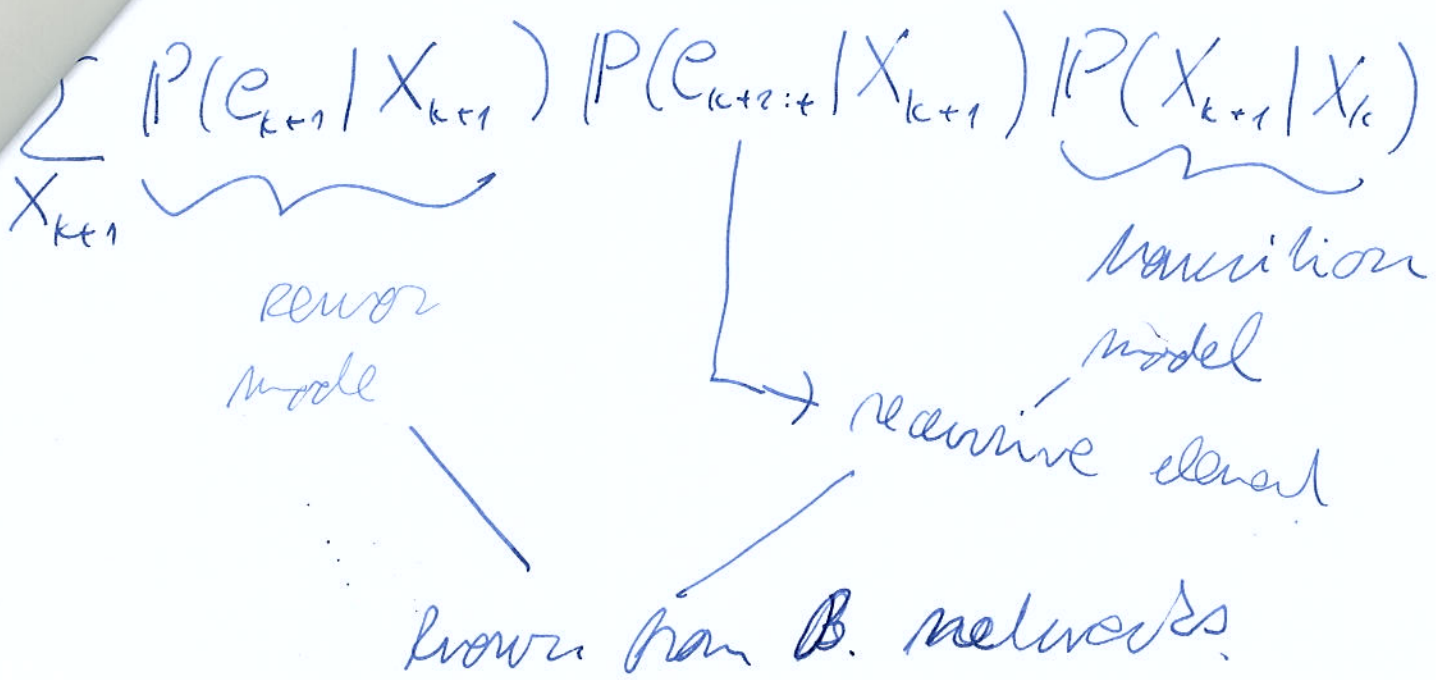 ∑ ℙ(e_{k+1} | X_{k+1}) ℙ(e_{k+2:t} | X_{k+1}) ℙ(X_{k+1} | X_k)
X_{k+1}
sensor
mode
transition
model
recursive element
known from B. networks.